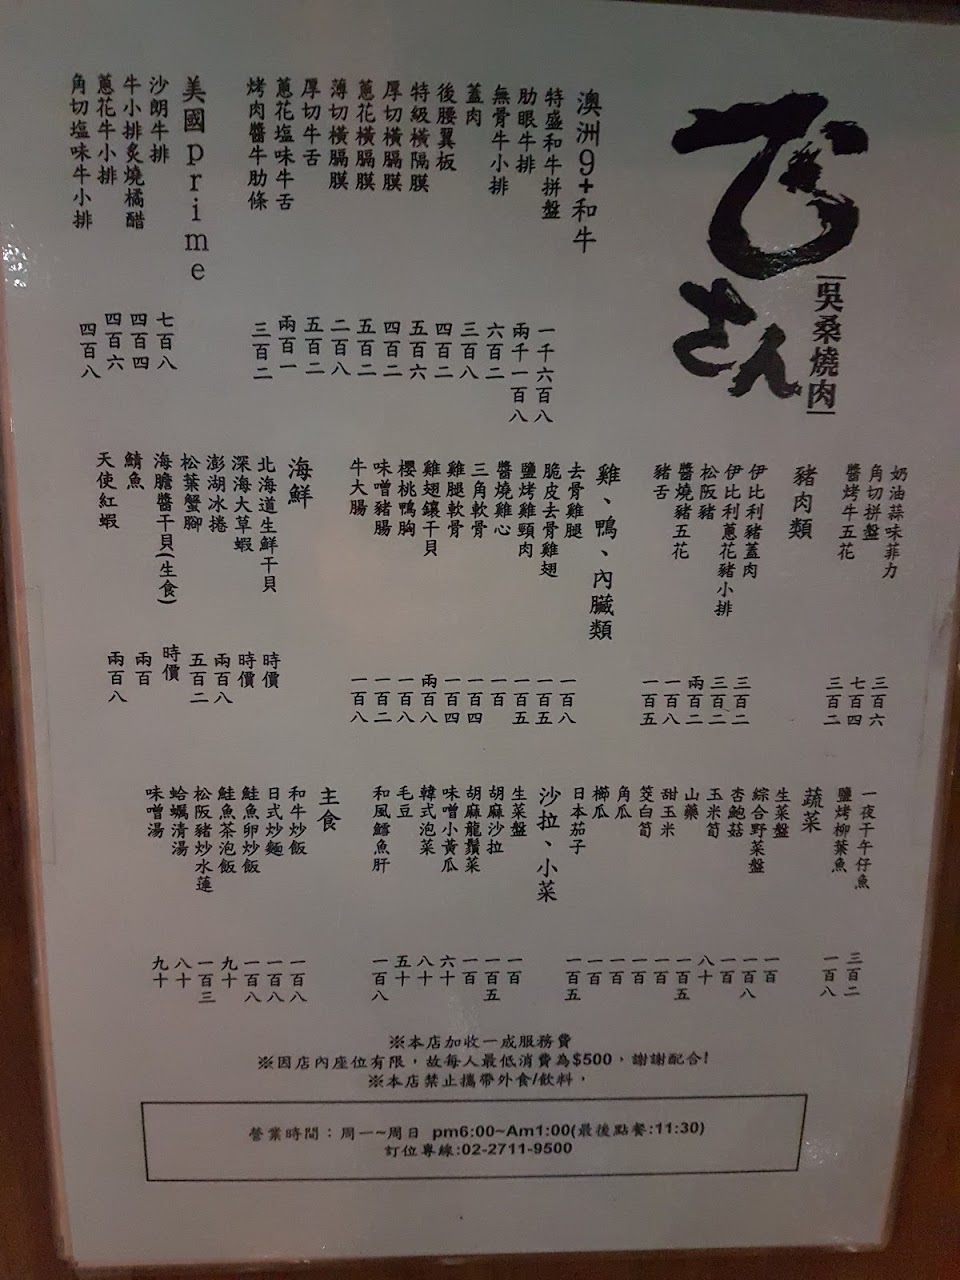 てさん
吳桑燒肉
澳洲9+和牛
特盛和牛拼盤 一千六百八
肋眼牛排 兩千一百八
無骨牛小排 六百二
蓋肉 三百八
後腰翼板 四百二
特級橫隔膜 五百六
厚切橫膈膜 四百二
蔥花橫膈膜 五百二
薄切橫膈膜 二百八
厚切牛舌 五百二
蔥花塩味牛舌 兩百一
烤肉醬牛肋條 三百二
美國prime
沙朗牛排 七百八
牛小排炙燒橘醋 四百四
蔥花牛小排 四百六
角切塩味牛小排 四百八
奶油蒜味菲力 三百六
角切拼盤 七百四
醬烤牛五花 三百二
豬肉類
伊比利豬蓋肉 三百二
伊比利蔥花豬小排 三百二
松阪豬 兩百二
醬燒豬五花 一百八
豬舌 一百五
雞、鴨、內臟類
去骨雞腿 一百八
脆皮去骨雞翅 一百五
鹽烤雞頸肉 一百五
醬燒雞心 一百
三角軟骨 一百四
雞腿軟骨 一百四
雞翅鑲干貝 兩百八
櫻桃鴨胸 一百八
味噌豬腸 一百二
牛大腸 一百八
海鮮
北海道生鮮干貝 時價
深海大草蝦 時價
澎湖冰捲 兩百八
松葉蟹腳 五百二
海膽醬干貝(生食) 時價
鯖魚 兩百
天使紅蝦 兩百八
一夜干午仔魚 三百二
鹽烤柳葉魚 一百八
蔬菜
生菜盤 一百
綜合野菜盤 一百八
杏鮑菇 一百
玉米筍 八十
山藥 一百五
甜玉米 一百
筊白筍 一百
角瓜 一百
櫛瓜 一百
日本茄子 一百五
沙拉、小菜
生菜盤 一百
胡麻沙拉 一百五
胡麻龍鬚菜 一百
味噌小黃瓜 六十
韓式泡菜 八十
毛豆 五十
和風鱈魚肝 一百八
主食
和牛炒飯 一百八
日式炒麵 一百八
鮭魚卵炒飯 一百八
鮭魚茶泡飯 九十
松阪豬炒水蓮 一百三
蛤蠣清湯 八十
味噌湯 九十
※本店加收一成服務費
※因店內座位有限，故每人最低消費為$500，謝謝配合!
※本店禁止攜帶外食/飲料，
營業時間：周一~周日 pm6:00~Am1:00(最後點餐:11:30)
訂位專線:02-2711-9500